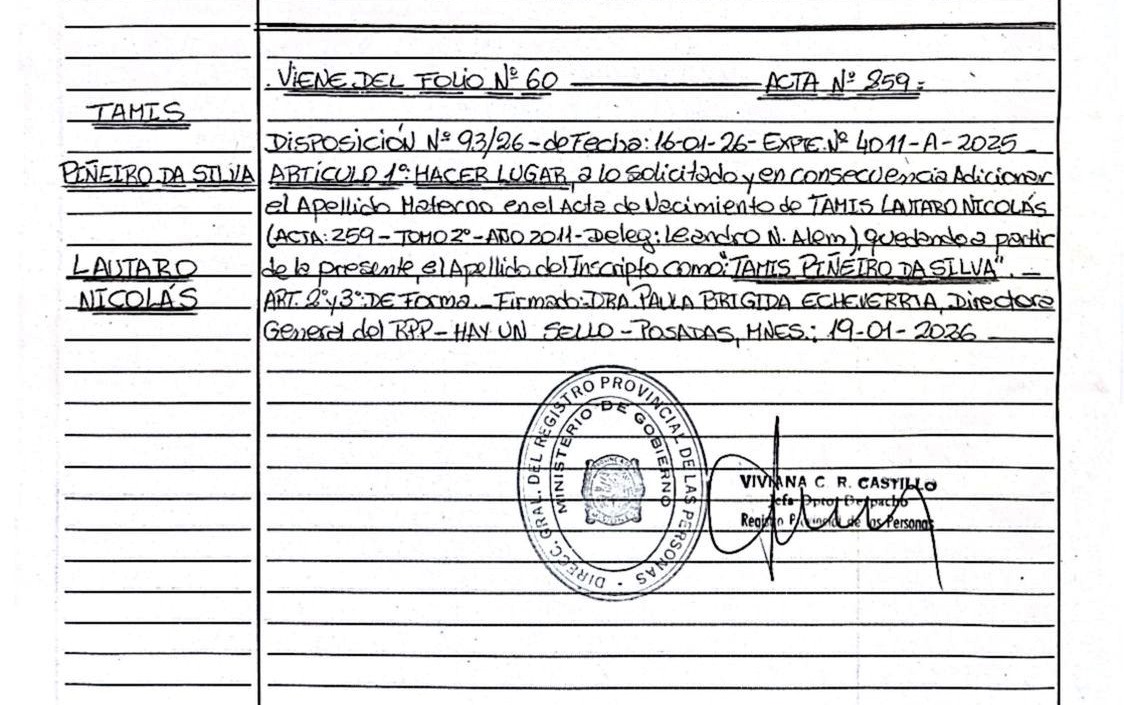 . VIENE DEL FOLIO Nº 60 ACTA Nº 259 =
TAMIS
PIÑEIRO DA SILVA
LAUTARO
NICOLÁS
DISPOSICIÓN Nº 93/26 - de Fecha: 16-01-26 - EXPTE. Nº 4011-A-2025
ARTÍCULO 1º: HACER LUGAR, a lo solicitado y en consecuencia Adicionar
el Apellido Materno en el Acta de Nacimiento de TAMIS LAUTARO NICOLÁS
(ACTA: 259 - TOMO 2º - AÑO 2011 - Deleg: Leandro N. Alem), quedando a partir
de la presente, el Apellido del Inscripto como: "TAMIS PIÑEIRO DA SILVA". -
ART. 2º y 3º: DE Forma. - Firmado: DRA. PAULA BRIGIDA ECHEVERRIA, Directora
General del RPP - HAY UN SELLO - POSADAS, MNES.: 19-01-2026
DIRECC. GRAL. DEL REGISTRO PROVINCIAL DE LAS PERSONAS
MINISTERIO DE GOBIERNO
VIVIANA C. R. CASTILLO
Jefa Dpto. Despacho
Registro Provincial de las Personas